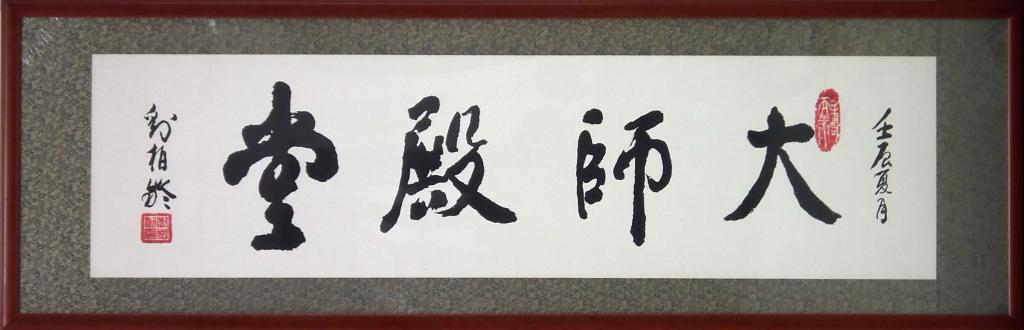 壬辰夏月
大師殿堂
劉柏